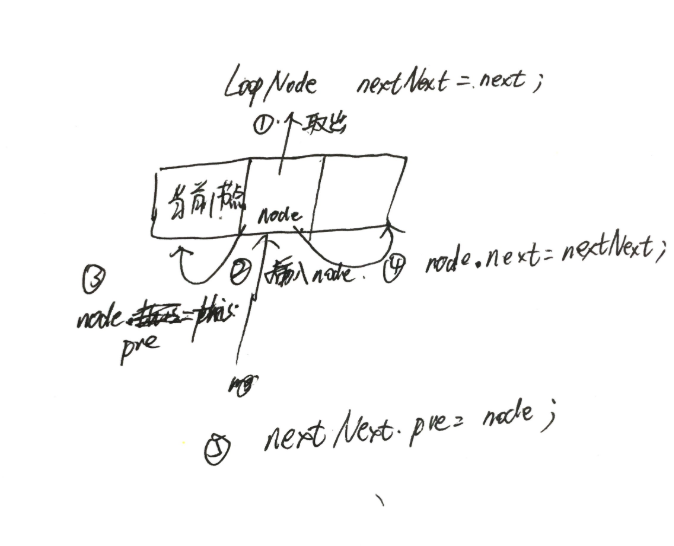 LoopNode nextNext = next;
① 取出
当前节点
node
③
② 插入node.
④ node.next = nextNext;
node. = this.
pre
⑤ nextNext.pre = node;